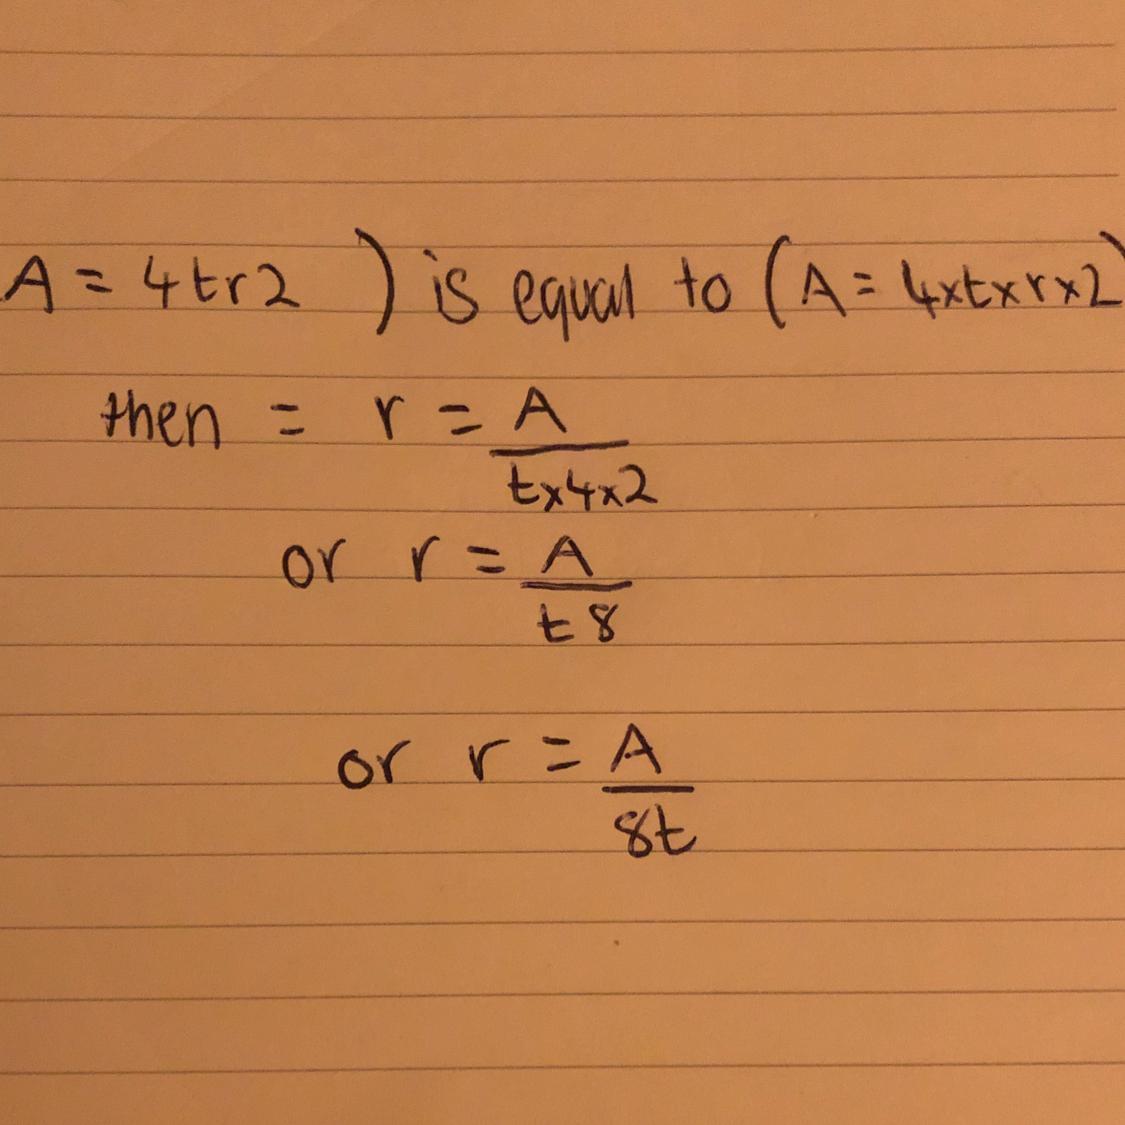 A = 4tr2 ) is equal to (A = 4xtxrx2)
then = r = A
tx4x2
or r = A
t 8
or r = A
8t